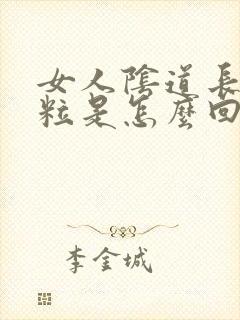 女人陰道長
粒是怎麼回
李金城